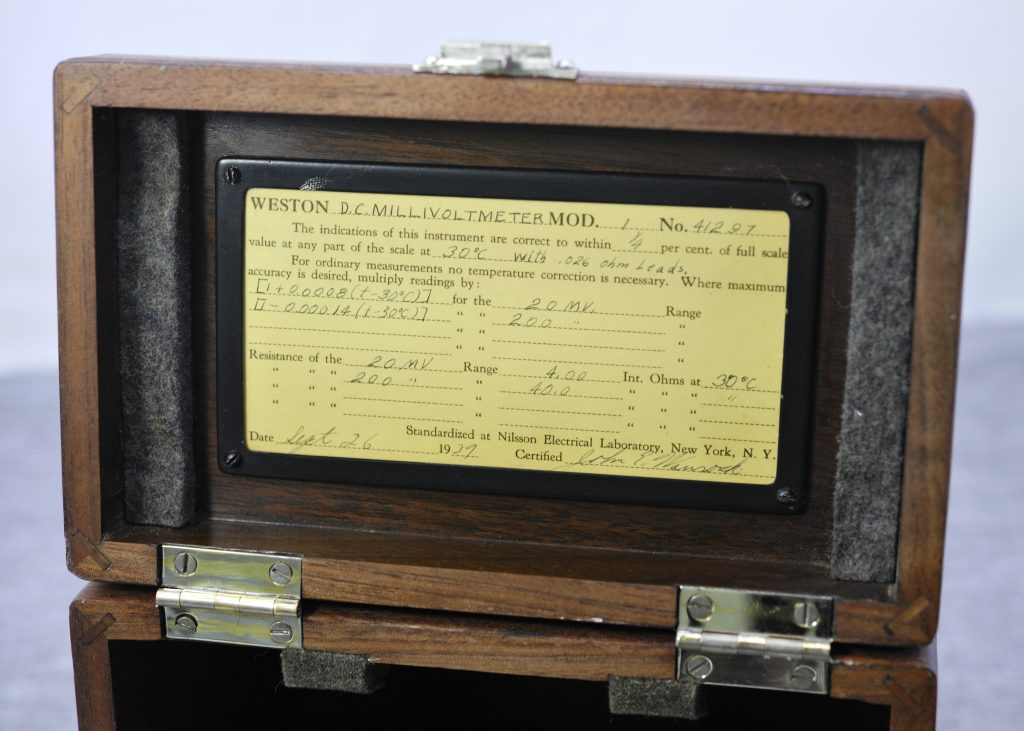 WESTON D.C. MILLIVOLTMETER MOD. 1 No. 41297
The indications of this instrument are correct to within 1/4 per cent. of full scale
value at any part of the scale at 30°C with .026 ohm Leads.
For ordinary measurements no temperature correction is necessary. Where maximum
accuracy is desired, multiply readings by:
[1 + 0.0008 (t-30°C)] for the 20 MV. Range
[1 - 0.00014 (t-30°C)] " " 200 " "
" " "
" " "
Resistance of the 20 MV Range 4.00 Int. Ohms at 30°C
" " " 200 " " 40.0 " " " "
" " " " " " "
" " " " " " "
Date Sept. 26 1939 Standardized at Nilsson Electrical Laboratory, New York, N. Y.
Certified John